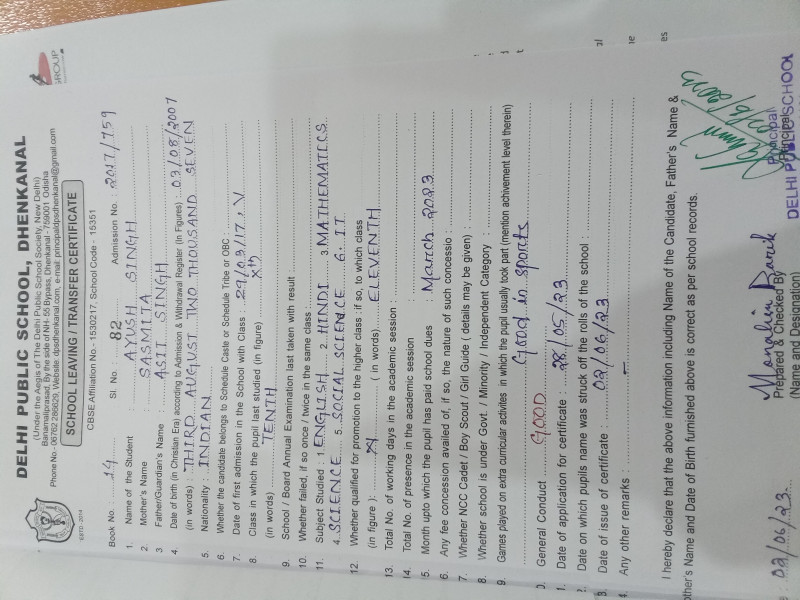 DELHI PUBLIC SCHOOL, DHENKANAL
(Under the Aegis of The Delhi Public School Society, New Delhi)
Banamaliprasad, By the side of NH-55 Bypass, Dhenkanal - 759001 Odisha
Phone No - 06762 286629, Website: dpsdhenkanal.com, e-mail: principaldpsdhenkanal@gmail.com
GROUP
ESTD-2014
SCHOOL LEAVING / TRANSFER CERTIFICATE
CBSE Affiliation No - 1530217, School Code - 15351
Book No. 14 Sl. No. 82 Admission No.: 2017/759
1. Name of the Student : AYUSH SINGH
2. Mother's Name : SASMITA
3 Father/Guardian's Name : ASIT SINGH
4. Date of birth (in Christian Era) according to Admission & Withdrawal Register (in Figures) : 03/08/2007
(in words) : THIRD AUGUST TWO THOUSAND SEVEN
5. Nationality : INDIAN
6. Whether the candidate belongs to Schedule Caste or Schedule Tribe or OBC :
7. Date of first admission in the School with Class : 29/03/17, V
8. Class in which the pupil last studied (in figure) : Xth
(in words) TENTH
9. School / Board Annual Examination last taken with result :
10. Whether failed, if so once / twice in the same class :
11. Subject Studied : 1. ENGLISH 2. HINDI 3. MATHEMATICS
4. SCIENCE 5. SOCIAL SCIENCE 6. IT
12. Whether qualified for promotion to the higher class : if so, to which class
(in figure ): XI ( in words) ELEVENTH
13. Total No. of working days in the academic session :
14. Total No. of presence in the academic session :
5. Month upto which the pupil has paid school dues : March 2023
6. Any fee concession availed of, if so, the nature of such concessio :
7. Whether NCC Cadet / Boy Scout / Girl Guide ( details may be given) :
8. Whether school is under Govt. / Minority / Independent Category :
9. Games played on extra curricular activites in which the pupil usually took part (mention achivement level therein)
Good in sports
0. General Conduct GOOD
1. Date of application for certificate : 28/05/23
2. Date on which pupils name was struck off the rolls of the school :
3. Date of issue of certificate : 02/06/23
4. Any other remarks :
I hereby declare that the above information including Name of the Candidate, Father's Name &
other's Name and Date of Birth furnished above is correct as per school records.
02/06/23
Prepared & Checked By
(Name and Designation)
Principal
DELHI PUBLIC SCHOOL